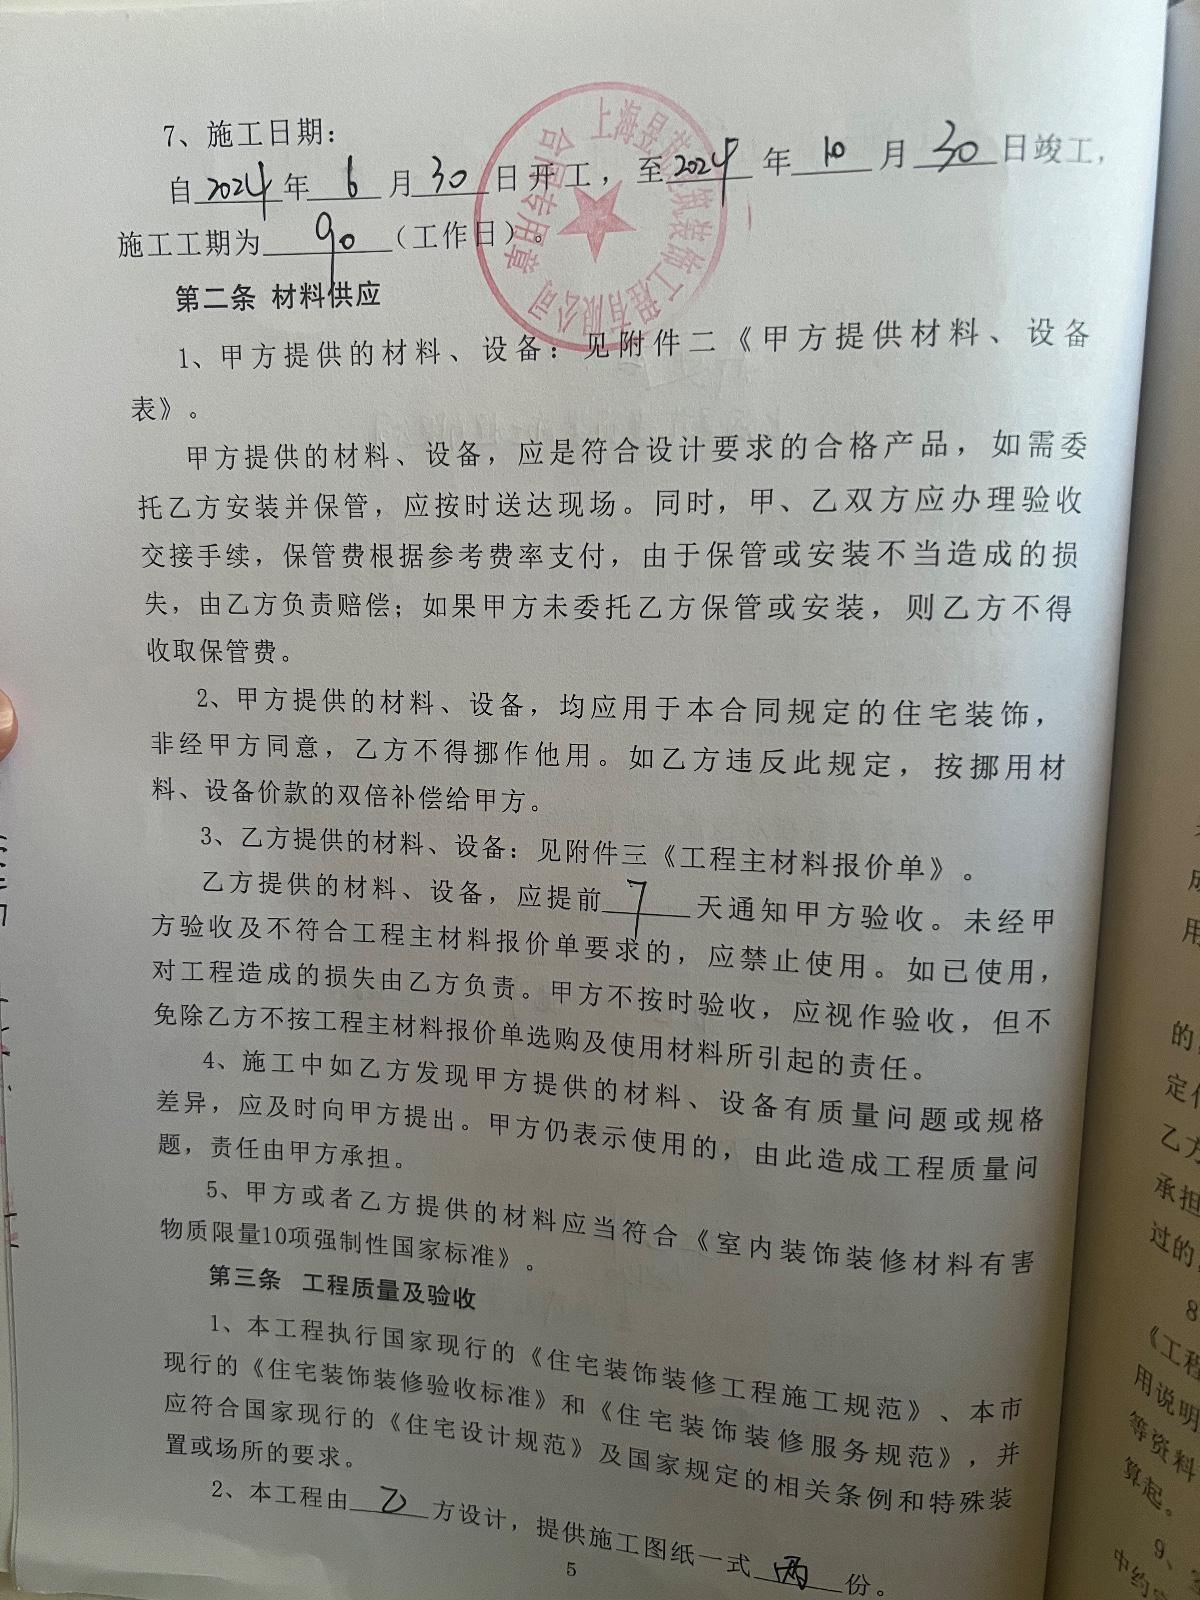 7、施工日期：
自2024年6月30日开工，至2024年10月30日竣工，
施工工期为90（工作日）。
上海昱 建筑装饰工程有限公司
合同专用章
第二条 材料供应
1、甲方提供的材料、设备：见附件二《甲方提供材料、设备
表》。
甲方提供的材料、设备，应是符合设计要求的合格产品，如需委
托乙方安装并保管，应按时送达现场。同时，甲、乙双方应办理验收
交接手续，保管费根据参考费率支付，由于保管或安装不当造成的损
失，由乙方负责赔偿；如果甲方未委托乙方保管或安装，则乙方不得
收取保管费。
2、甲方提供的材料、设备，均应用于本合同规定的住宅装饰，
非经甲方同意，乙方不得挪作他用。如乙方违反此规定，按挪用材
料、设备价款的双倍补偿给甲方。
3、乙方提供的材料、设备：见附件三《工程主材料报价单》。
乙方提供的材料、设备，应提前7天通知甲方验收。未经甲
方验收及不符合工程主材料报价单要求的，应禁止使用。如已使用，
对工程造成的损失由乙方负责。甲方不按时验收，应视作验收，但不
免除乙方不按工程主材料报价单选购及使用材料所引起的责任。
4、施工中如乙方发现甲方提供的材料、设备有质量问题或规格
差异，应及时向甲方提出。甲方仍表示使用的，由此造成工程质量问
题，责任由甲方承担。
5、甲方或者乙方提供的材料应当符合《室内装饰装修材料有害
物质限量10项强制性国家标准》。
第三条 工程质量及验收
1、本工程执行国家现行的《住宅装饰装修工程施工规范》、本市
现行的《住宅装饰装修验收标准》和《住宅装饰装修服务规范》，并
应符合国家现行的《住宅设计规范》及国家规定的相关条例和特殊装
置或场所的要求。
2、本工程由乙方设计，提供施工图纸一式两份。
5
成
用
的，
定
乙方
承担
过的，
8
《工程
用说明
等资料
算起。
9、
中约定